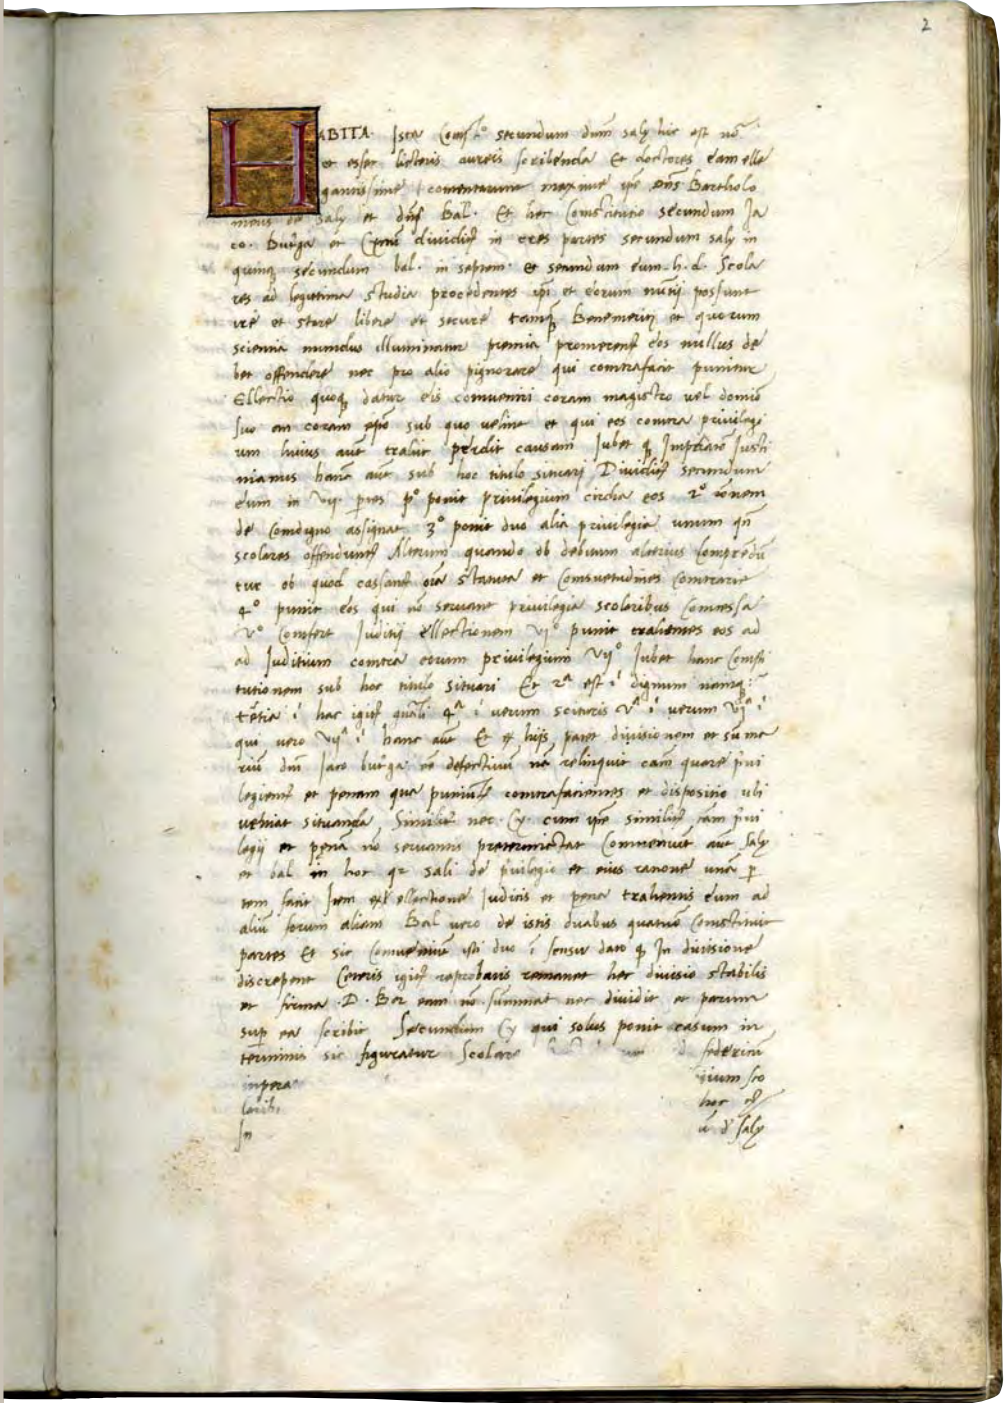 2
HABITA. Ista Const.º secundum dnm saly hic est no
et esset licteris aureis scribenda Et doctores eam elle
gantissime comentarunt maxime ipe dns Bartholo
meus de Saly et dns Bal. Et hec Constitutio secundum Ja
co. Butrga et Cynu dividit in tres partes secundum saly in
quinq secundum bal. in septem. et secundum eum. h. d. Scola
res ad legitima studia procedentes ipi et eorum nuntij possunt
ire et stare libere et secure tamq Benemeriti et quorum
scientia mundus illuminatur premia promerent eos nullus de
bet offendere nec pro alio pignorare qui contrafacit punitur
Ellectio quoq datur eis conveniri coram magistro vel domio
suo an coram epo sub quo velint et qui eos contra privilegi
um huius aut trahit perdit causam Jubet q Imperator Justi
nianus hanc aut sub hoc titulo situari Dividit secundum
eum in vij. ptes pº ponit privilegium circha eos 2º ronem
de condigno assignat 3º ponit duo alia privilegia unum qn
scolares offendunt Alterum quando ob debitum alterius compredu
tur ob quod cassant oia statuta et consuetudines contrarie
4º punit eos qui no servant privilegia scolaribus concessa
vº confert Juditij ellectionem vjº punit trahentes eos ad
ad Juditium contra eorum privilegium vijº Jubet hanc consti
tutionem sub hoc titulo situari Et 2ª est i dignum namq
tertia i hac igit gnali 4ª i verum scituris vª i verum vjª i
qui vero vijª i hanc aut Et ex hijs patet divisionem et suma
riu dni Jaco butrga ee defectivu na relinquit cam quare pvi
legient et penam qua puniunt contrafacientes et dispositio ubi
veniat situanda Similit nec Cy. cum ipe similit cam pvi
legij et pena no servantis pretermictat Convenit aut Saly
et bal in hoc qr sali de pvilegio et eius ratione una p
tem facit Item ex ellectione Judicis et pena trahentis eum ad
aliu forum aliam Bal vero de istis duabus quatuor constituit
partes Et sic conveniut isti duo i sensu dato q In divisione
discrepent Ceteris igit reprobatis remanet hec divisio stabilis
et firma. D. Bar eam no summat nec dividit et parum
sup ea scribit Secundum Cy qui solus ponit casum in
terminis sic figuratur Scolare federicu
inpera ium sco
larib hoc
In u d saly